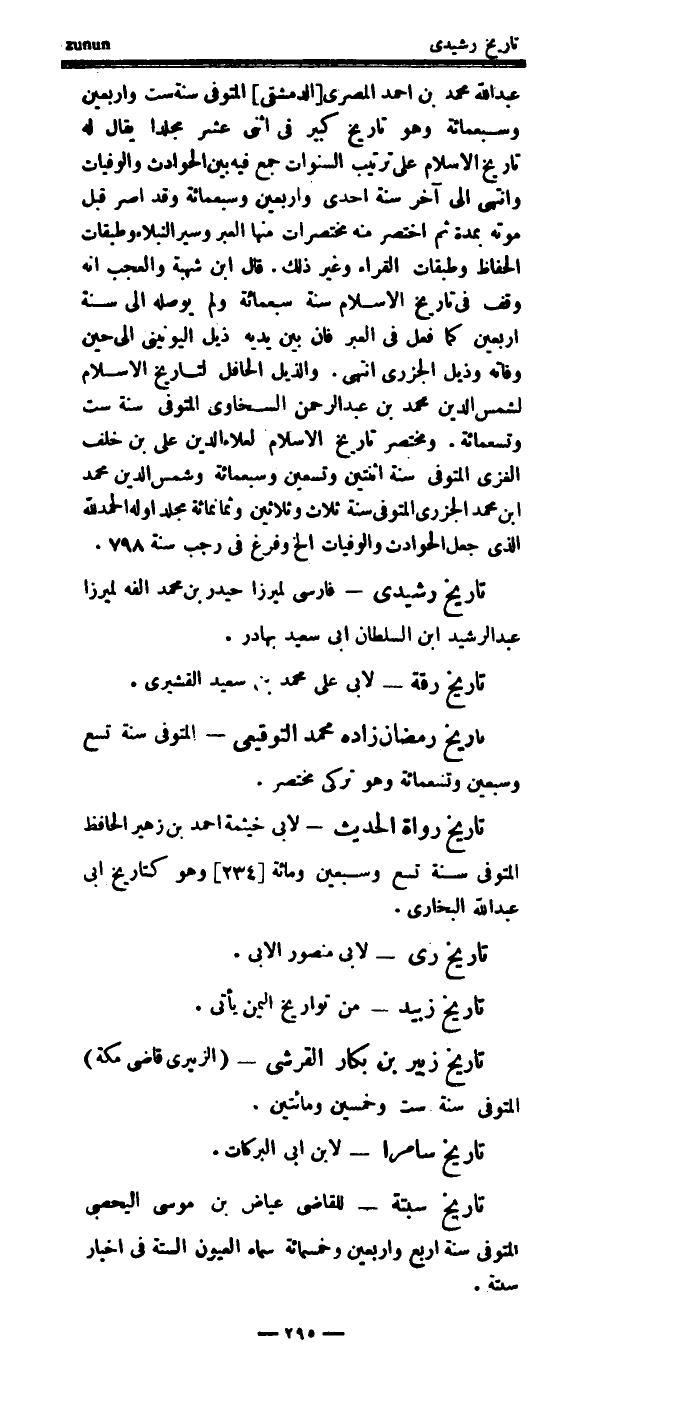 zunun تاريخ رشيدى
عبدالله محمد بن احمد المصرى[الدمشقى] المتوفى سنة ست واربعين
وسبعمائة وهو تاريخ كبير فى اثنى عشر مجلدا يقال له
تاريخ الاسلام على ترتيب السنوات جمع فيه بين الحوادث والوفيات
وانتهى الى آخر سنة احدى واربعين وسبعمائة وقد اصر قبل
موته بمدة ثم اختصر منه مختصرات منها العبر وسير النبلاء وطبقات
الحفاظ وطبقات القراء وغير ذلك. قال ابن شهبة والعجب انه
وقف فى تاريخ الاسلام سنة سبعمائة ولم يوصله الى سنة
اربعين كما فعل فى العبر فان بين يديه ذيل اليونينى الى حين
وفاته وذيل الجزرى انتهى . والذيل الحافل لتاريخ الاسلام
لشمس الدين محمد بن عبدالرحمن السخاوى المتوفى سنة ست
وتسعمائة . ومختصر تاريخ الاسلام لعلاءالدين على بن خلف
الغزى المتوفى سنة اثنتين وتسعين وسبعمائة وشمس الدين محمد
ابن محمد الجزرى المتوفى سنة ثلاث وثلاثين وثمانمائة مجلد اوله الحمدلله
الذى جعل الحوادث والوفيات الخ وفرغ فى رجب سنة ٧٩٨ .
تاريخ رشيدى – فارسى لميرزا حيدر بن محمد الفه لميرزا
عبدالرشيد ابن السلطان ابى سعيد بهادر .
تاريخ رقة – لابى على محمد بن سعيد القشيرى .
تاريخ رمضان زاده محمد التوقيعى – المتوفى سنة تسع
وسبعين وتسعمائة وهو تركى مختصر .
تاريخ رواة الحديث – لابى خيثمة احمد بن زهير الحافظ
المتوفى سنة تسع وسبعين ومائة [٢٣٤] وهو كتاريخ ابى
عبدالله البخارى .
تاريخ رى – لابى منصور الابى .
تاريخ زبيد – من تواريخ اليمن يأتى .
تاريخ زبير بن بكار القرشى – (الزبيرى قاضى مكة)
المتوفى سنة ست وخمسين ومائتين .
تاريخ سامرا – لابن ابى البركات .
تاريخ سبتة – للقاضى عياض بن موسى اليحصبى
المتوفى سنة اربع واربعين وخمسمائة سماه العيون الستة فى اخبار
سبتة .
— ٢٩٥ —